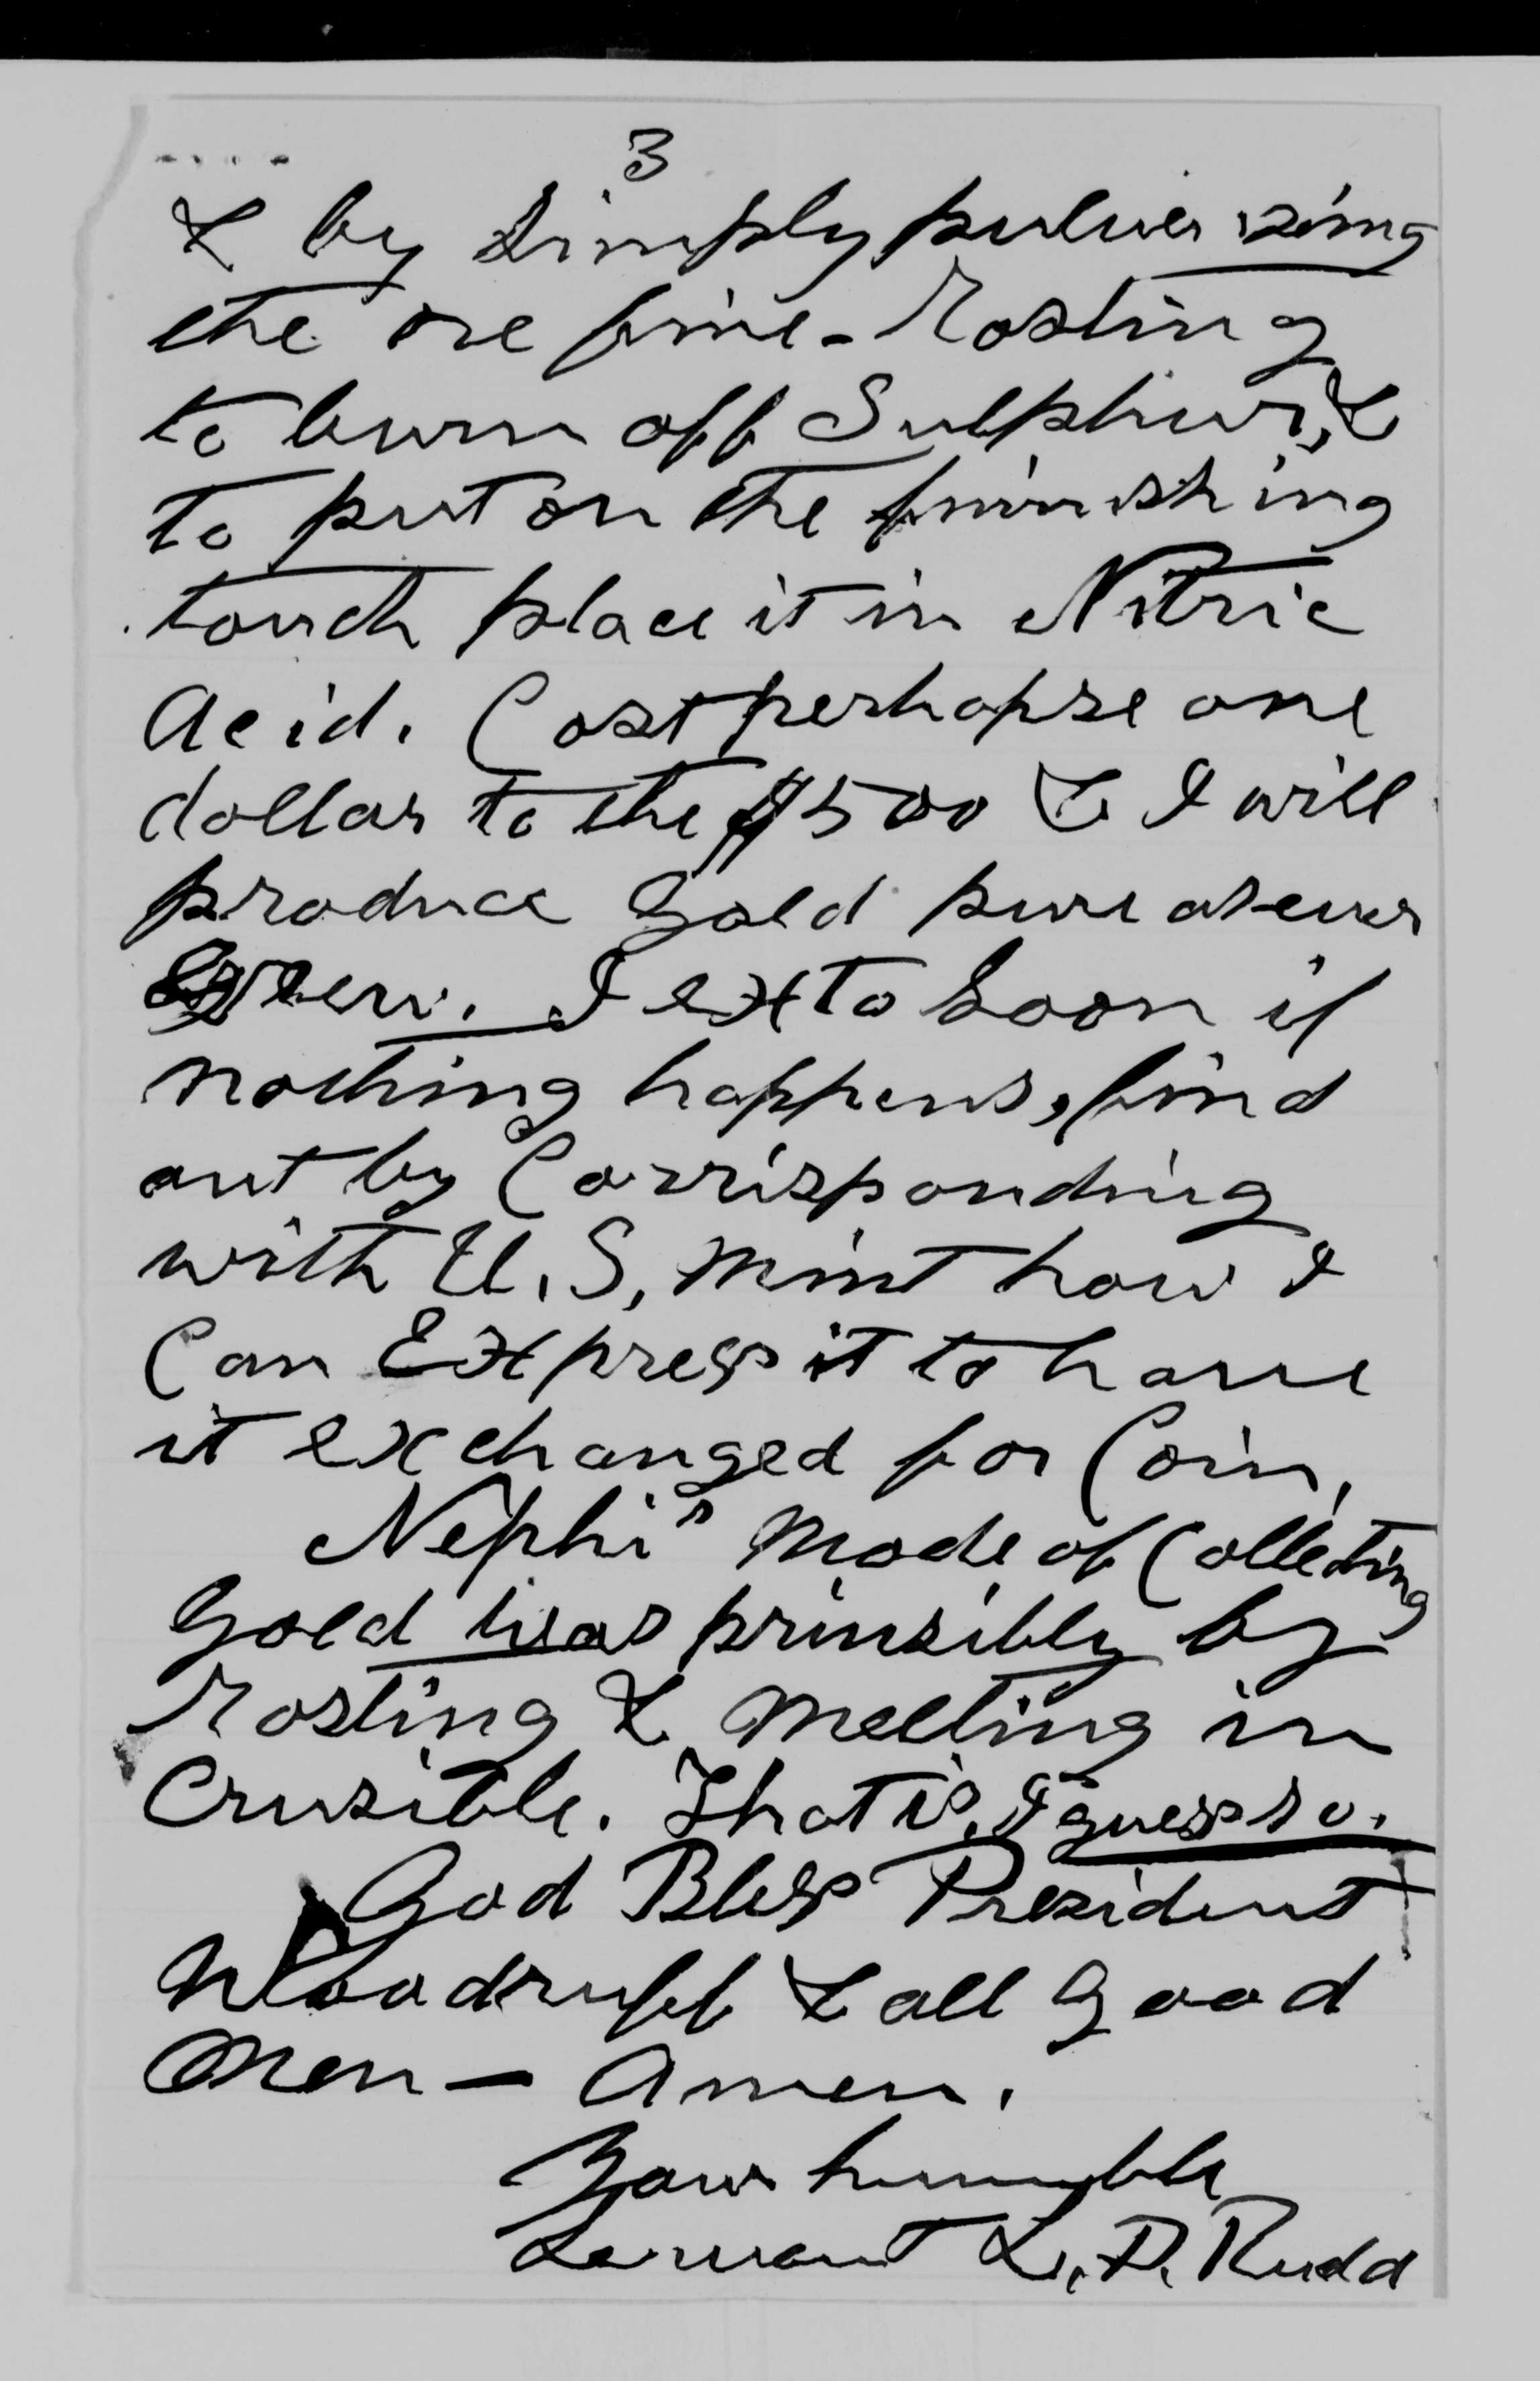 3
& by simply pulverizing
the ore fine - Rosting
to burn off Sulphur, &
to put on the finnishing
touch place it in Nitric
Acid. Cost perhapse one
dollar to the $500 & I will
produce Gold pure as ever
seen. I ext to soon if
nothing happens, find
out by Corrisponding
with U.S, Mint how I
Can Express it to have
it exchanged for Coin,
Nephi's Mode of Collecting
Gold was prinsibly by
Rosting & Melting in
Crusible. That is, I guess so.
God Bless President
Woodruff & all Good
Men — Amen.
Your humble
Servant L. D. Rudd